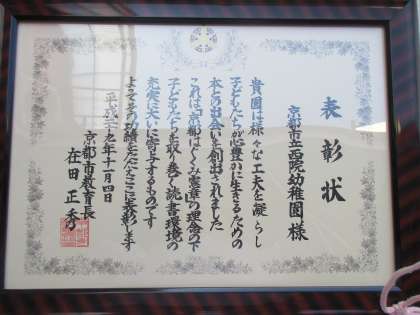 表彰状
京都市立西院幼稚園様
貴園は様々な工夫を凝らし
子どもたちが心豊かに生きるための
本との出会いを創出されました
これは「京都はぐくみ憲章」の理念の下
子どもたちを取り巻く読書環境の
充実に大いに寄与するものです
よってその功績をたたえここに表彰します
平成二十九年十一月四日
京都市教育長
在田正秀